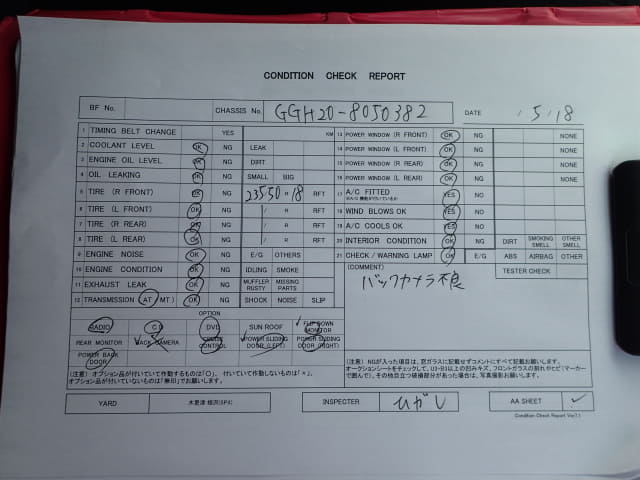 CONDITION CHECK REPORT
BF No.
CHASSIS No. GGH20-8050382
DATE 5/18
1 TIMING BELT CHANGE YES KM
2 COOLANT LEVEL OK NG LEAK
3 ENGINE OIL LEVEL OK NG DIRT
4 OIL LEAKING OK NG SMALL BIG
5 TIRE (R FRONT) OK NG 235 50 R 18 RFT
6 TIRE (L FRONT) OK NG / R RFT
7 TIRE (R REAR) OK NG / R RFT
8 TIRE (L REAR) OK NG / R RFT
9 ENGINE NOISE OK NG E/G OTHERS
10 ENGINE CONDITION OK NG IDLING SMOKE
11 EXHAUST LEAK OK NG MUFFLER RUSTY MISSING PARTS
12 TRANSMISSION (AT MT) OK NG SHOCK NOISE SLIP
13 POWER WINDOW (R FRONT) OK NG NONE
14 POWER WINDOW (L FRONT) OK NG NONE
15 POWER WINDOW (R REAR) OK NG NONE
16 POWER WINDOW (L REAR) OK NG NONE
17 A/C FITTED YES NO
18 WIND BLOWS OK YES NO
19 A/C COOLS OK YES NO
20 INTERIOR CONDITION OK NG DIRT SMOKING SMELL OTHER SMELL
21 CHECK/WARNING LAMP OK E/G ABS AIRBAG OTHER
(COMMENT) TESTER CHECK
バックカメラ不良
OPTION
RADIO CD DVD SUN ROOF FLIP DOWN MONITOR
REAR MONITOR BACK CAMERA CRUISE CONTROL POWER SLIDING DOOR (LEFT) POWER SLIDING DOOR (RIGHT)
POWER BACK DOOR
(注意) オプション品が付いていて作動するものは「○」、付いていて作動しないものは「×」、
オプション品が付いていないものは「無印」でお願いします。
(注意) NGが入った項目は、窓ガラスに記載せずコメントにすべて記載お願いします。
オークションシートをチェックして、U3・B3以上の凹みキズ、フロントガラスの割れやヒビ(マーカー
で囲んで)、その他目立つ破損部分があった場合は、写真撮影お願いします。
YARD
INSPECTER ひがし
AA SHEET ✓
Condition Check Report Ver7.1